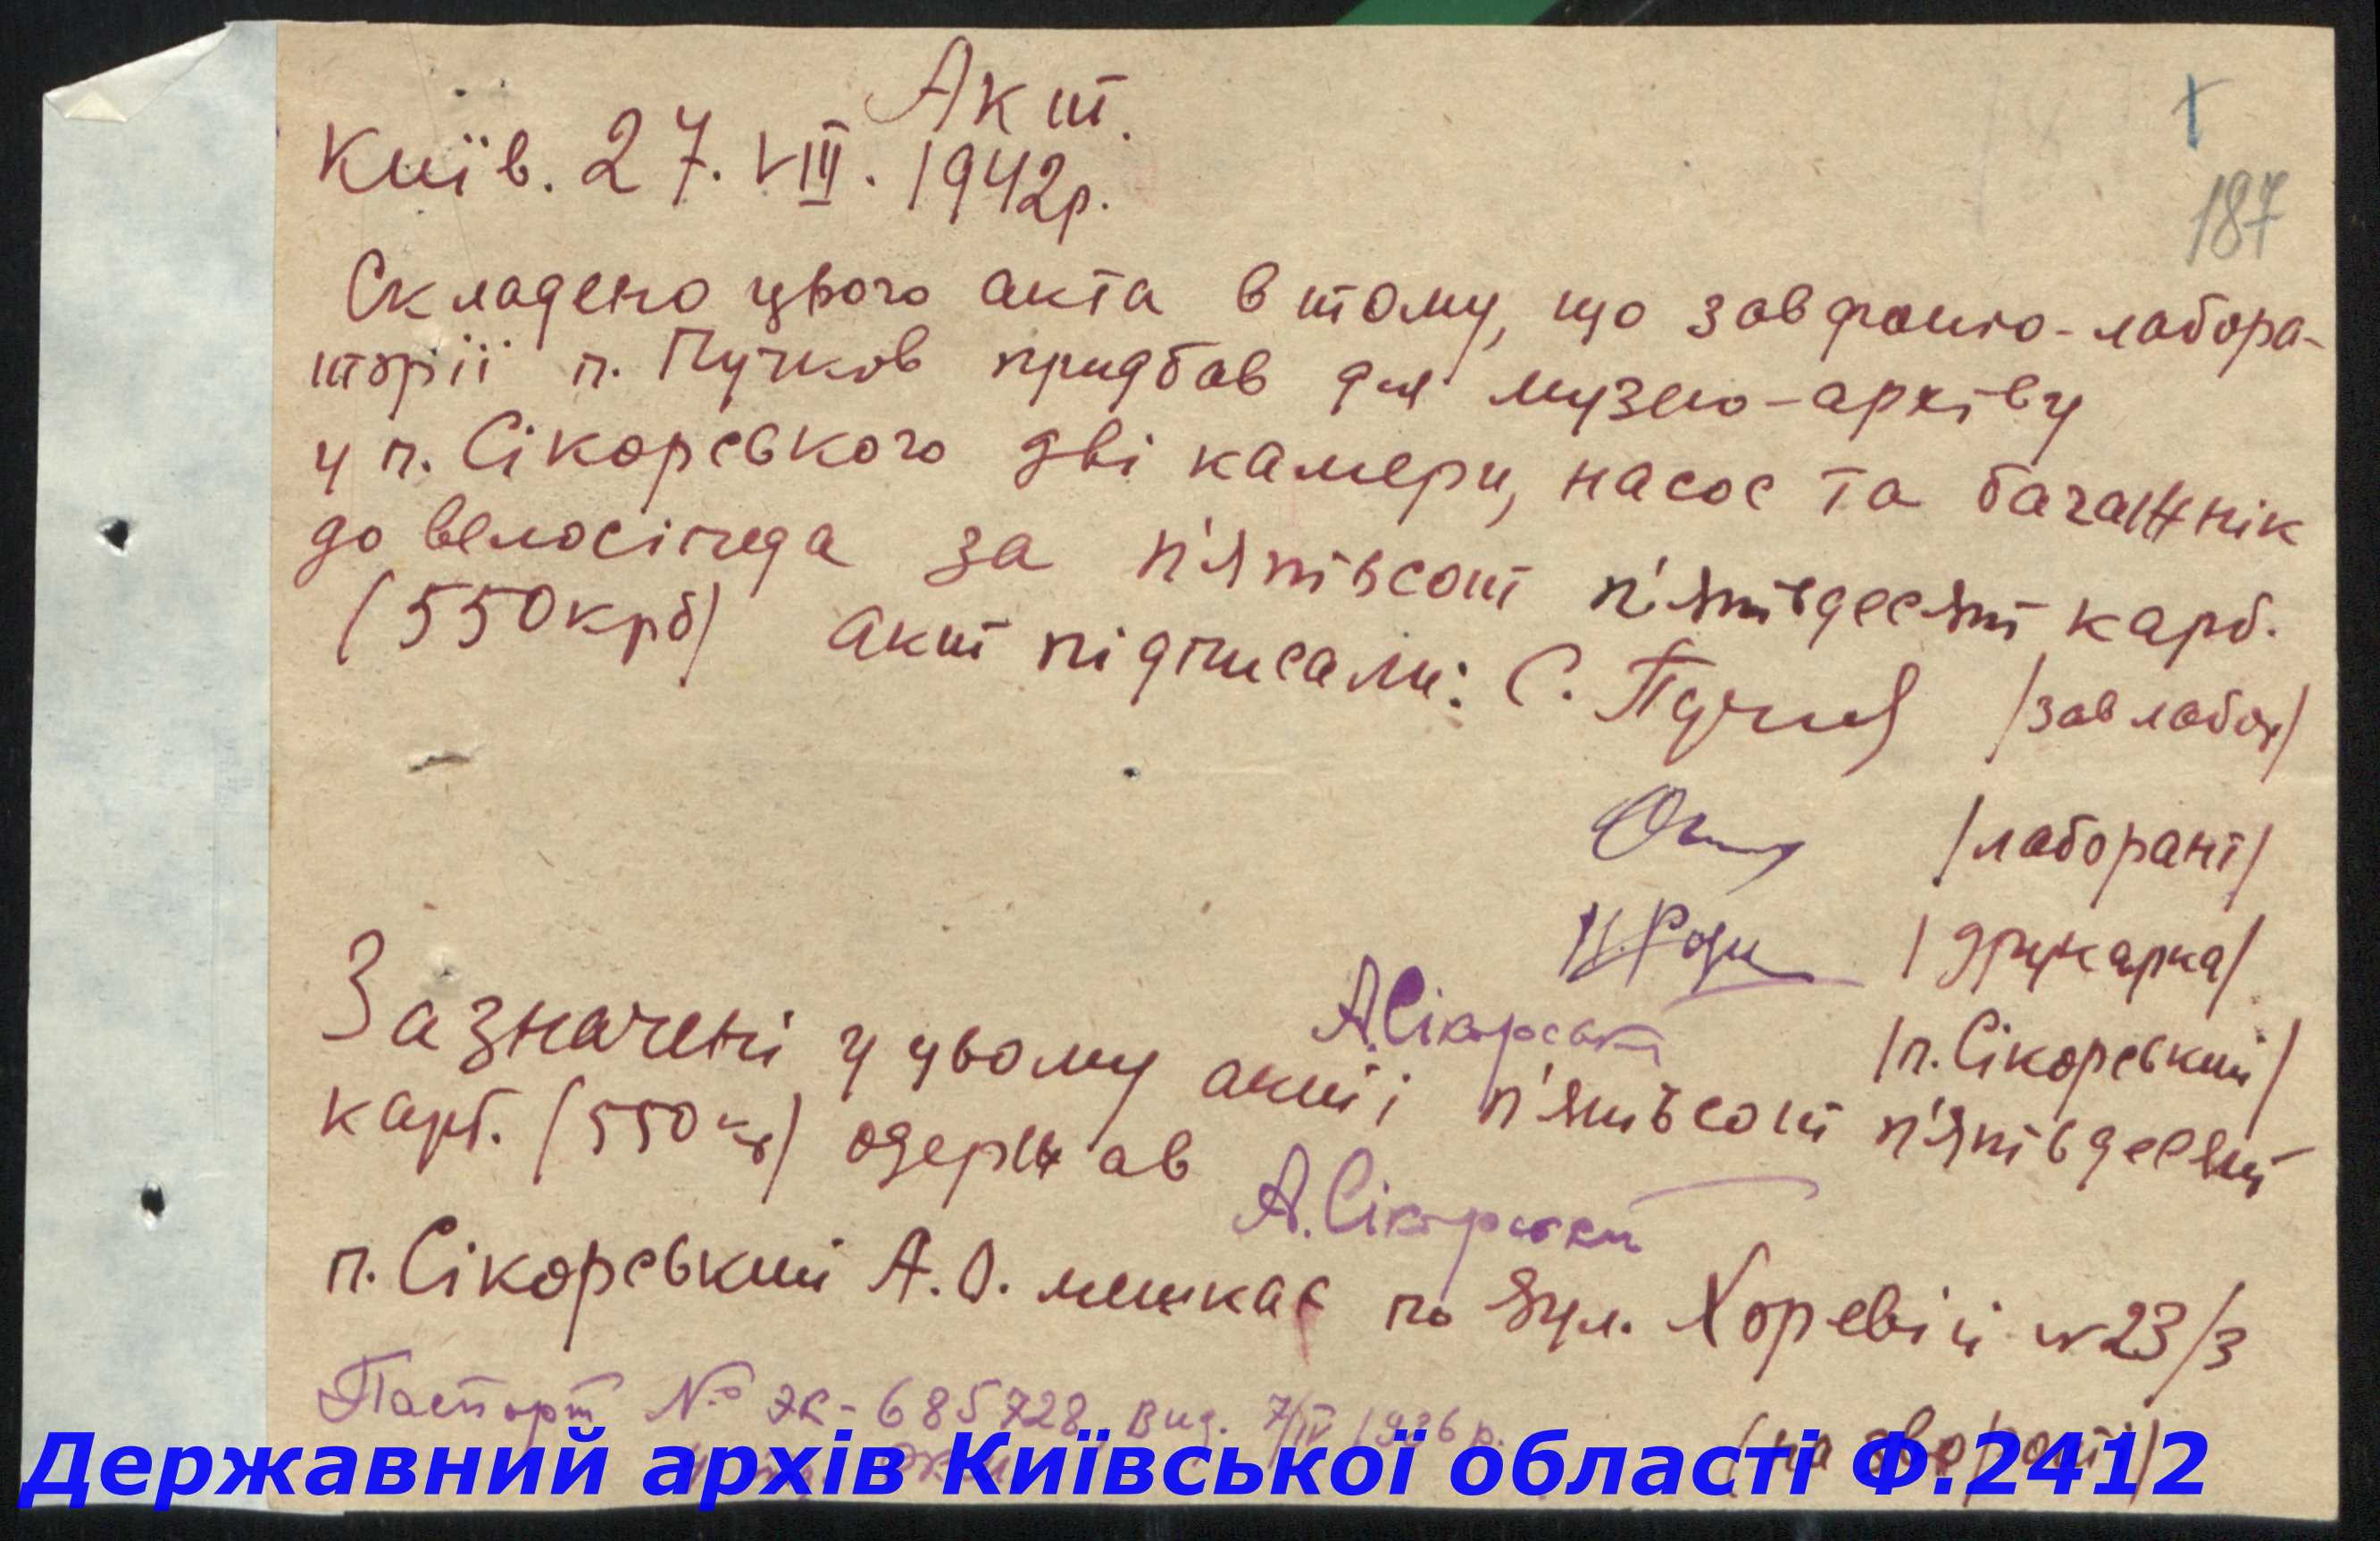 Акт.
Київ. 27. VIII. 1942р.
187
Складено цього акта в тому, що зав фото-лабора-
торіії п. Пучков придбав для музею-архіву
у п. Сікорського дві камери, насос та багажнік
до велосіпеда за п'ятьсот п'ятьдесят карб.
(550 крб) Акт підписали: С. Пучков /зав лабор/
/лаборант/
/друкарка/
А.Сікорський /п. Сікорський/
Зазначені у цьому акті п'ятьсот п'ятьдесят
карб. (550 кр) одержав
А. Сікорський
п. Сікорський А.О. мешкає по вул. Хоревій № 23/3
Паспорт № ЭК-685728, вид. 7/IV 1936 р.
(на звороті)
Державний архів Київської області Ф.2412